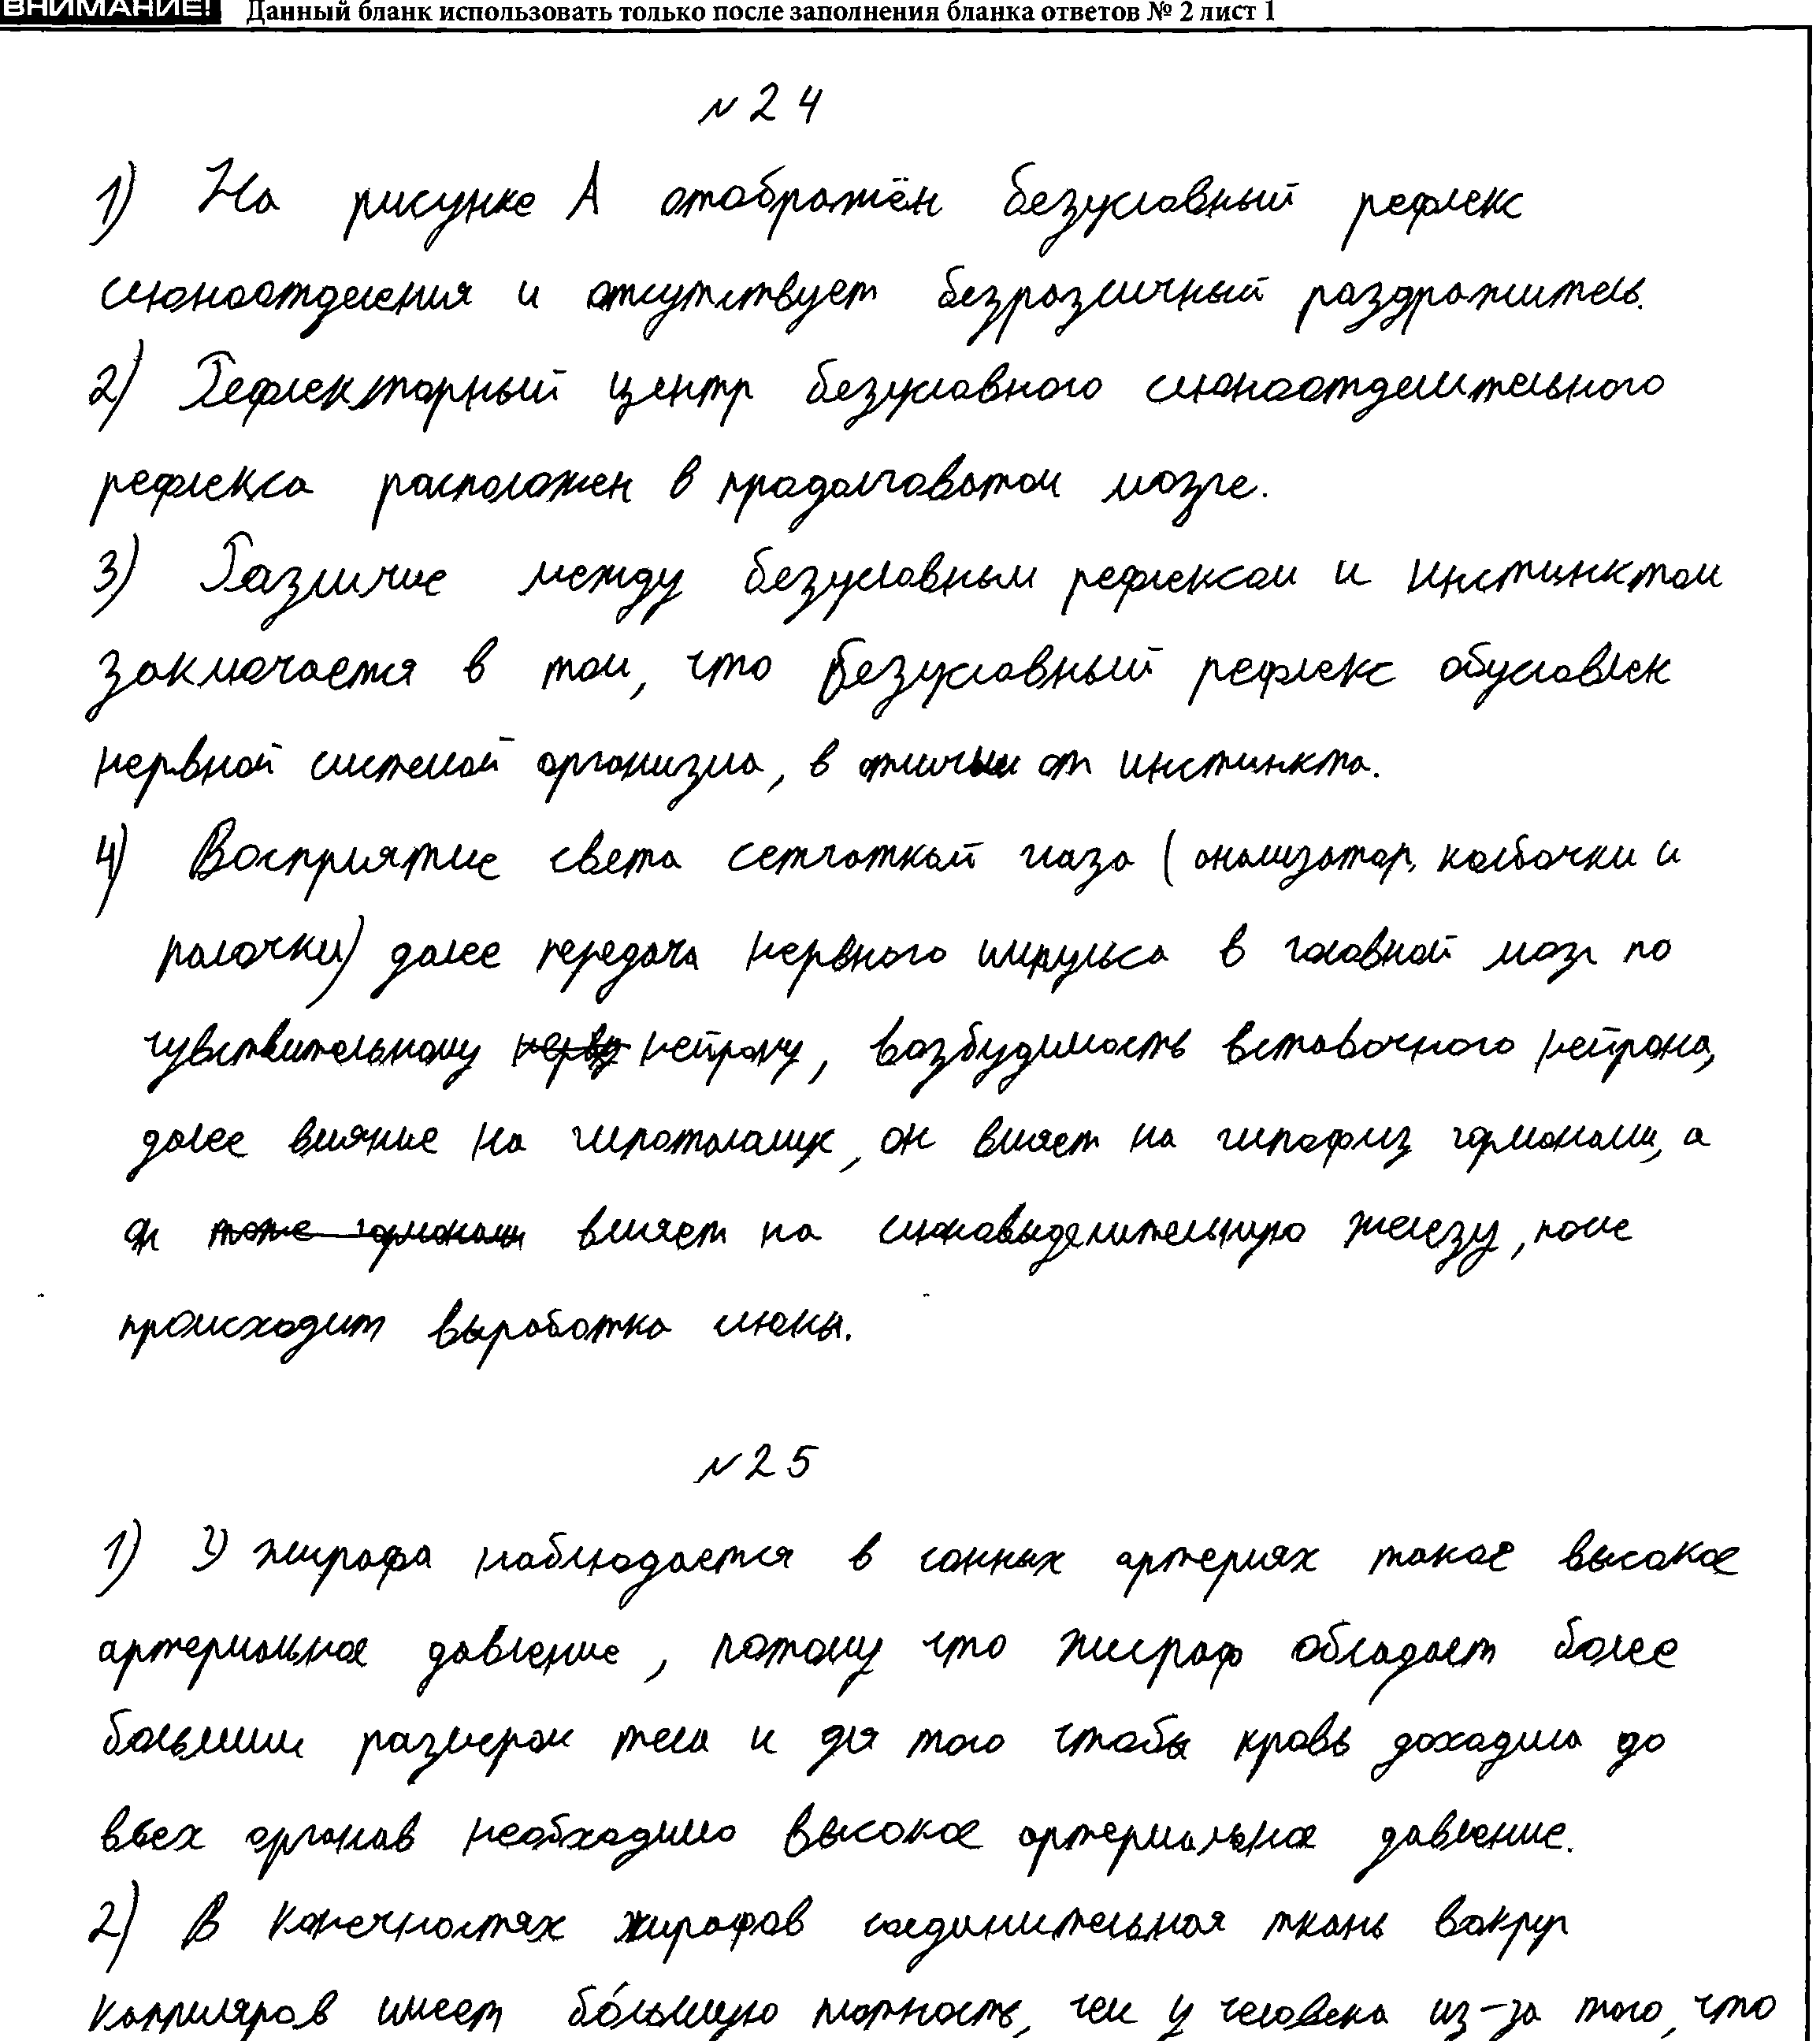 ВНИМАНИЕ! Данный бланк использовать только после заполнения бланка ответов № 2 лист 1
№24
1) На рисунке А отображён безусловный рефлекс
слюноотделения и отсутствует безразличный раздражитель.
2) Рефлекторный центр безусловного слюноотделительного
рефлекса расположен в продолговатом мозге.
3) Различие между безусловным рефлексом и инстинктом
заключается в том, что безусловный рефлекс обусловлен
нервной системой организма, в отличии от инстинкта.
4) Восприятие света сетчаткой глаза (анализатор, колбочки и
палочки) далее передача нервного импульса в головной мозг по
чувствительному нерву нейрону, возбудимость вставочного нейрона,
далее влияние на гипоталамус, он влияет на гипофиз гормонами, а
он тоже гормонами влияет на слюновыделительную железу, после
происходит выработка слюны.
№25
1) У жирафа наблюдается в сонных артериях такое высокое
артериальное давление, потому что жираф обладает более
большим размером тела и для того чтобы кровь доходила до
всех органов необходимо высокое артериальное давление.
2) В конечностях жирафов соединительная ткань вокруг
капилляров имеет бо́льшую плотность, чем у человека из-за того, что